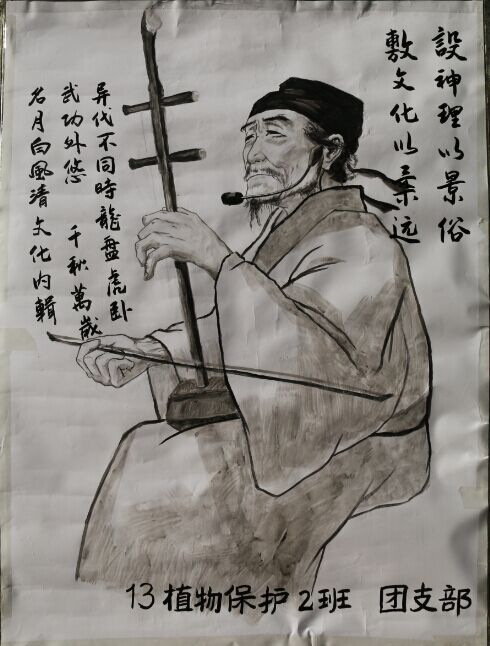 設神理以景俗
敷文化以柔远
异代不同時龍盘虎卧
武功外悠 千秋萬歲
名月白風清文化内輯
13植物保护2班 团支部